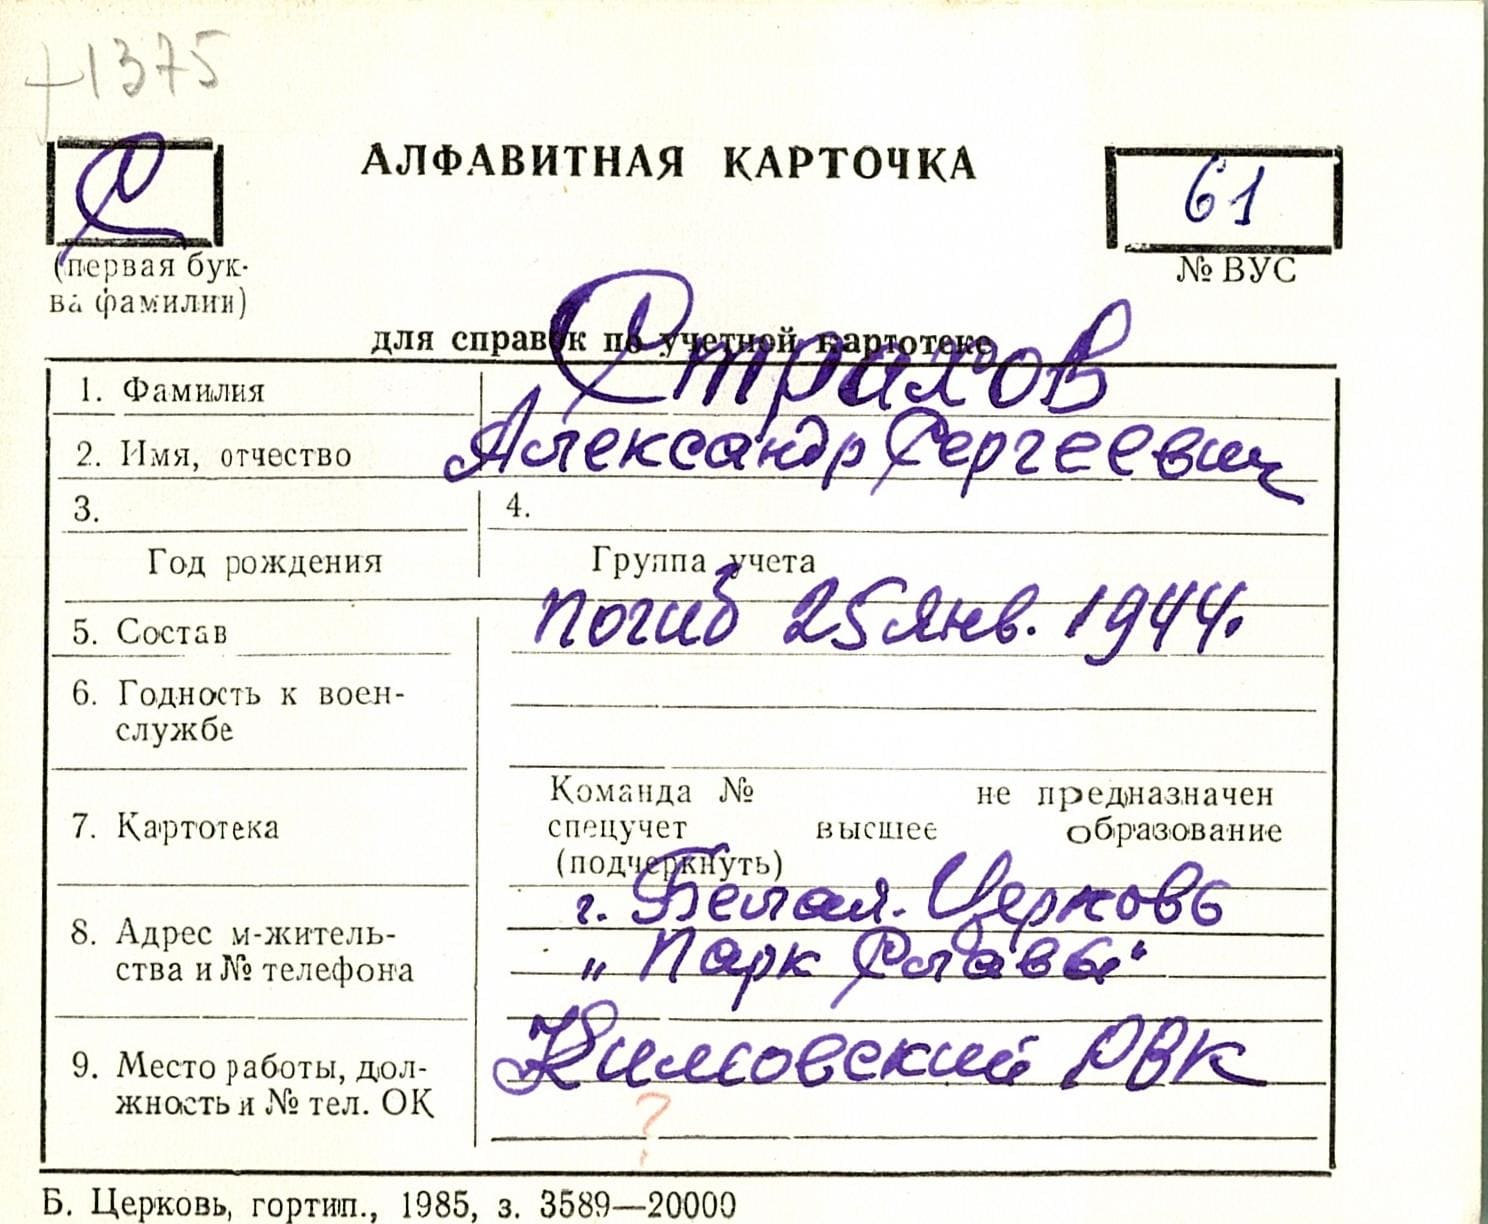 +1375
С
АЛФАВИТНАЯ КАРТОЧКА
61
(первая бук-
ва фамилии)
№ ВУС
для справок по учетной картотеке
1. Фамилия Страхов
2. Имя, отчество Александр Сергеевич
3. 4.
Год рождения Группа учета
5. Состав погиб 25 янв. 1944.
6. Годность к воен-
службе
Команда № не предназначен
7. Картотека спецучет высшее образование
(подчеркнуть)
г. Белая. Церковь
8. Адрес м-житель-
ства и № телефона „Парк Славы"
9. Место работы, дол-
жность и № тел. ОК
Кимовский РВК
?
Б. Церковь, гортип., 1985, з. 3589—20000